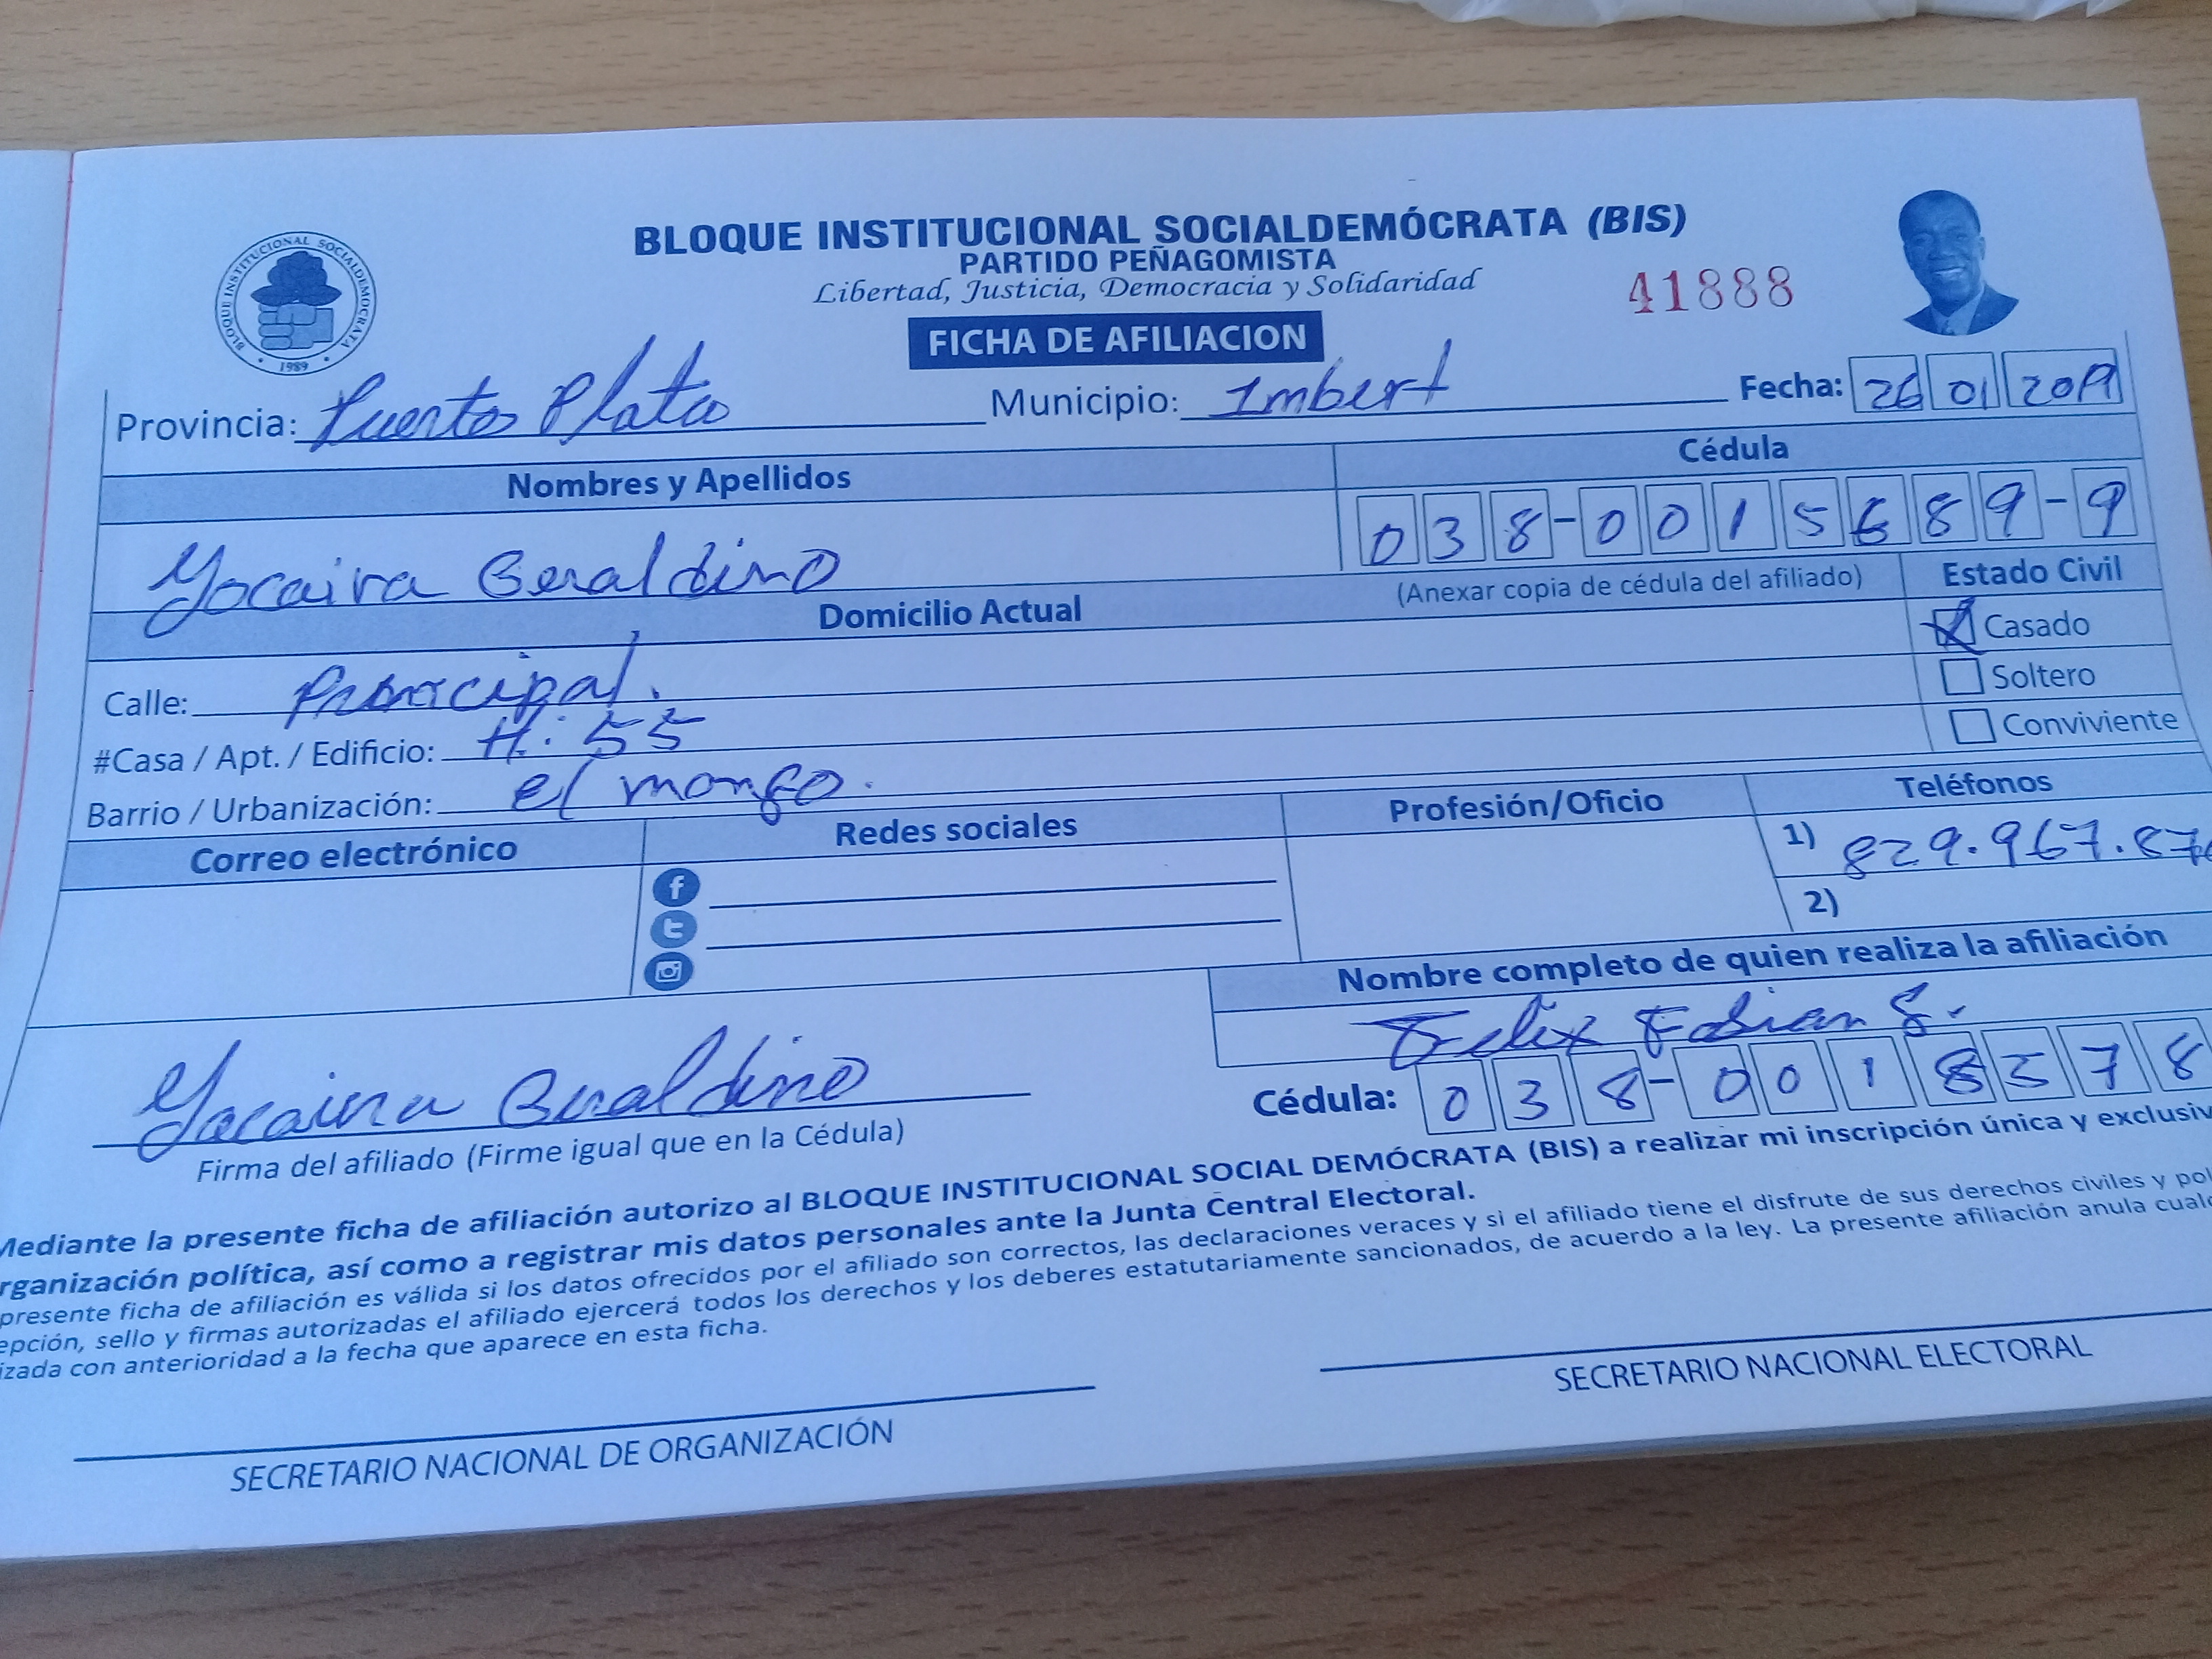 BLOQUE INSTITUCIONAL SOCIALDEMÓCRATA (BIS)
PARTIDO PEÑAGOMISTA
Libertad, Justicia, Democracia y Solidaridad
41888
BLOQUE INSTITUCIONAL SOCIALDEMOCRATA
1989
FICHA DE AFILIACION
Provincia: Puerto Plata Municipio: Imbert Fecha: 26 01 2019
Nombres y Apellidos Cédula
Yocaira Geraldino 038-0015689-9
(Anexar copia de cédula del afiliado) Estado Civil
Domicilio Actual
Casado
Calle: Principal.
Soltero
#Casa / Apt. / Edificio: #: 55
Conviviente
Barrio / Urbanización: el
Correo electrónico Redes sociales Profesión/Oficio Teléfonos
1) 829.967.87
2)
Nombre completo de quien realiza la afiliación
Felix Fabian
Cédula: 038-0018578
Yocaira Geraldino
Firma del afiliado (Firme igual que en la Cédula)
Mediante la presente ficha de afiliación autorizo al BLOQUE INSTITUCIONAL SOCIAL DEMÓCRATA (BIS) a realizar mi inscripción única y exclusiv
rganización política, así como a registrar mis datos personales ante la Junta Central Electoral.
presente ficha de afiliación es válida si los datos ofrecidos por el afiliado son correctos, las declaraciones veraces y si el afiliado tiene el disfrute de sus derechos civiles y pol
epción, sello y firmas autorizadas el afiliado ejercerá todos los derechos y los deberes estatutariamente sancionados, de acuerdo a la ley. La presente afiliación anula cual
izada con anterioridad a la fecha que aparece en esta ficha.
SECRETARIO NACIONAL DE ORGANIZACIÓN SECRETARIO NACIONAL ELECTORAL